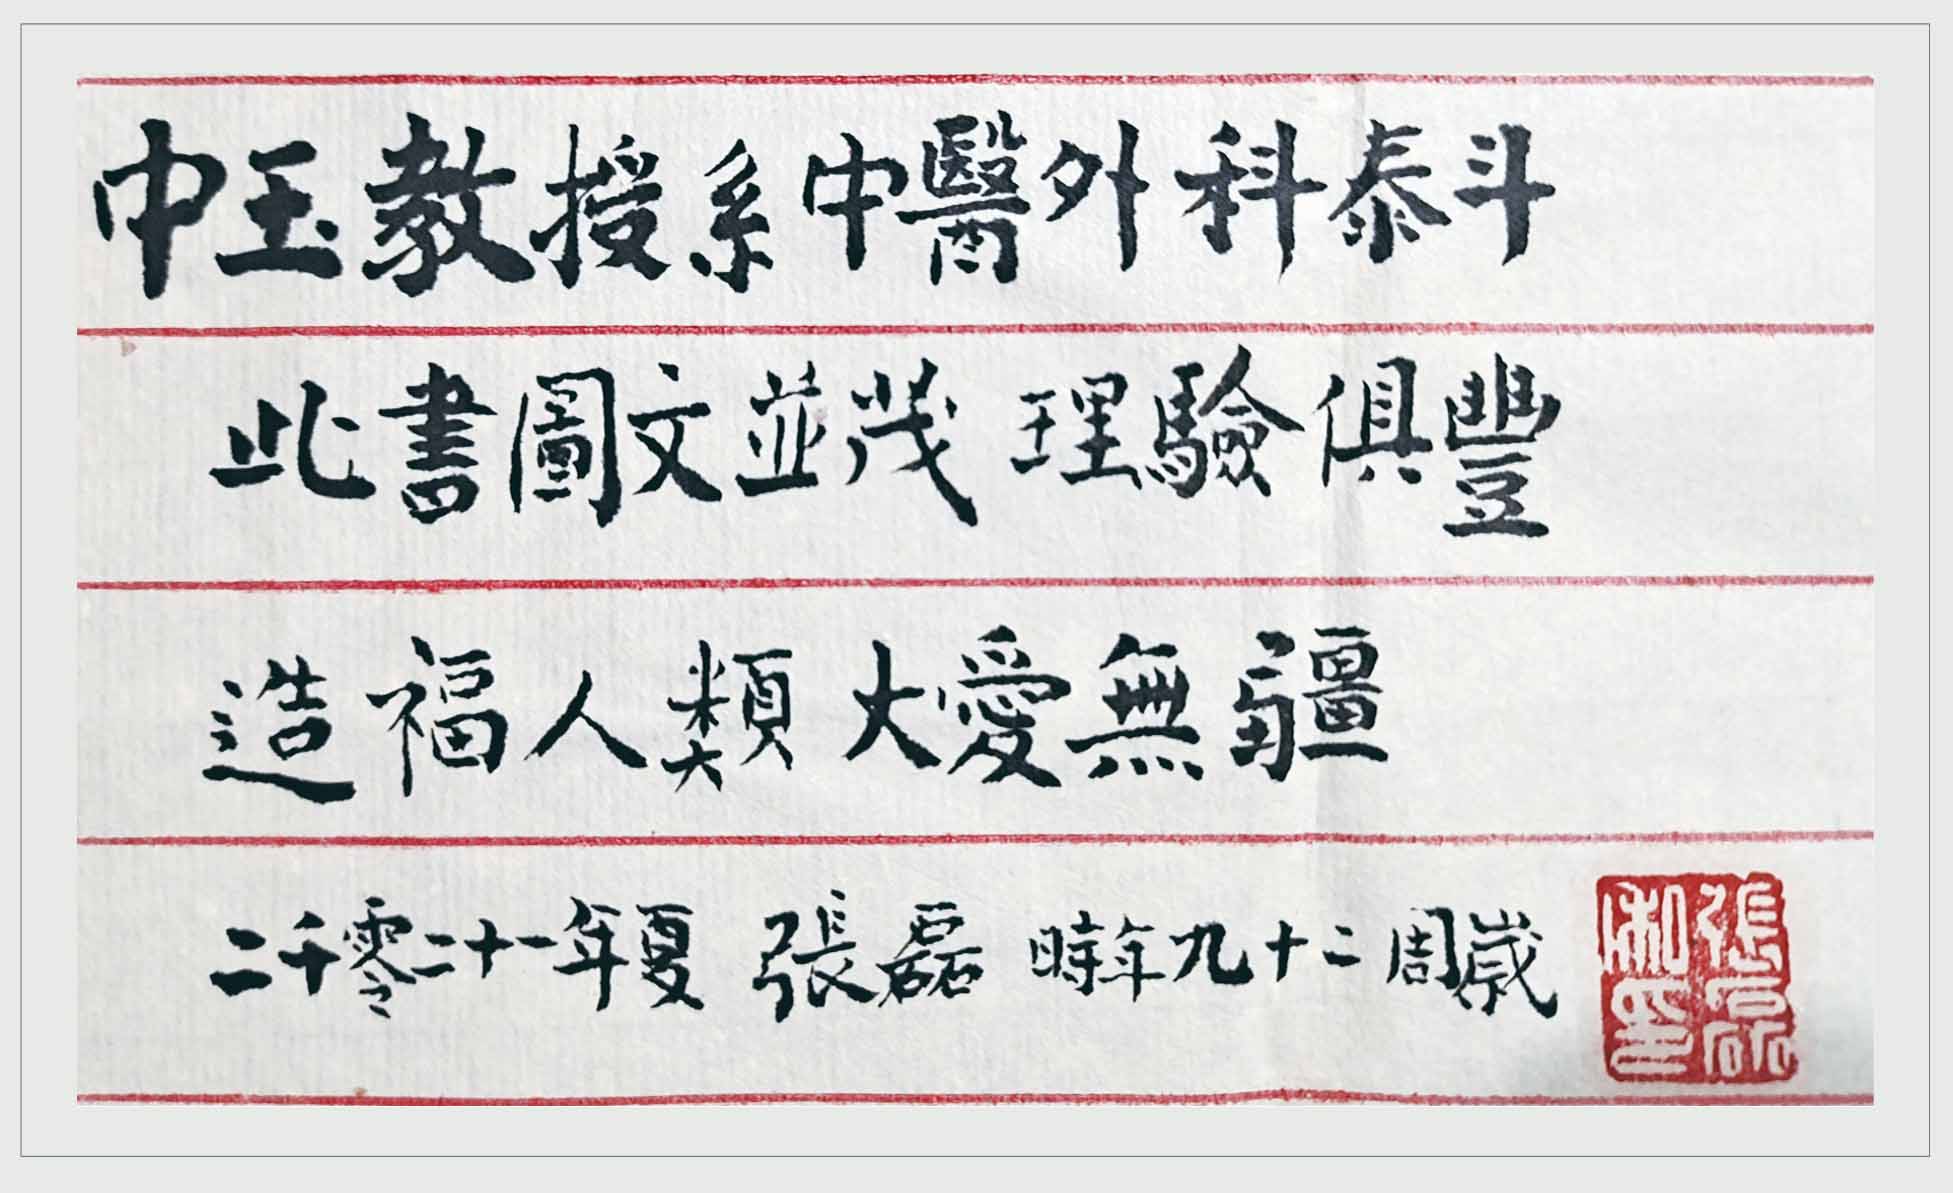 中玉教授系中醫外科泰斗
此書圖文並茂 理驗俱豐
造福人類 大愛無疆
二千零二十一年夏 張磊 時年九十二周歲
張磊私印